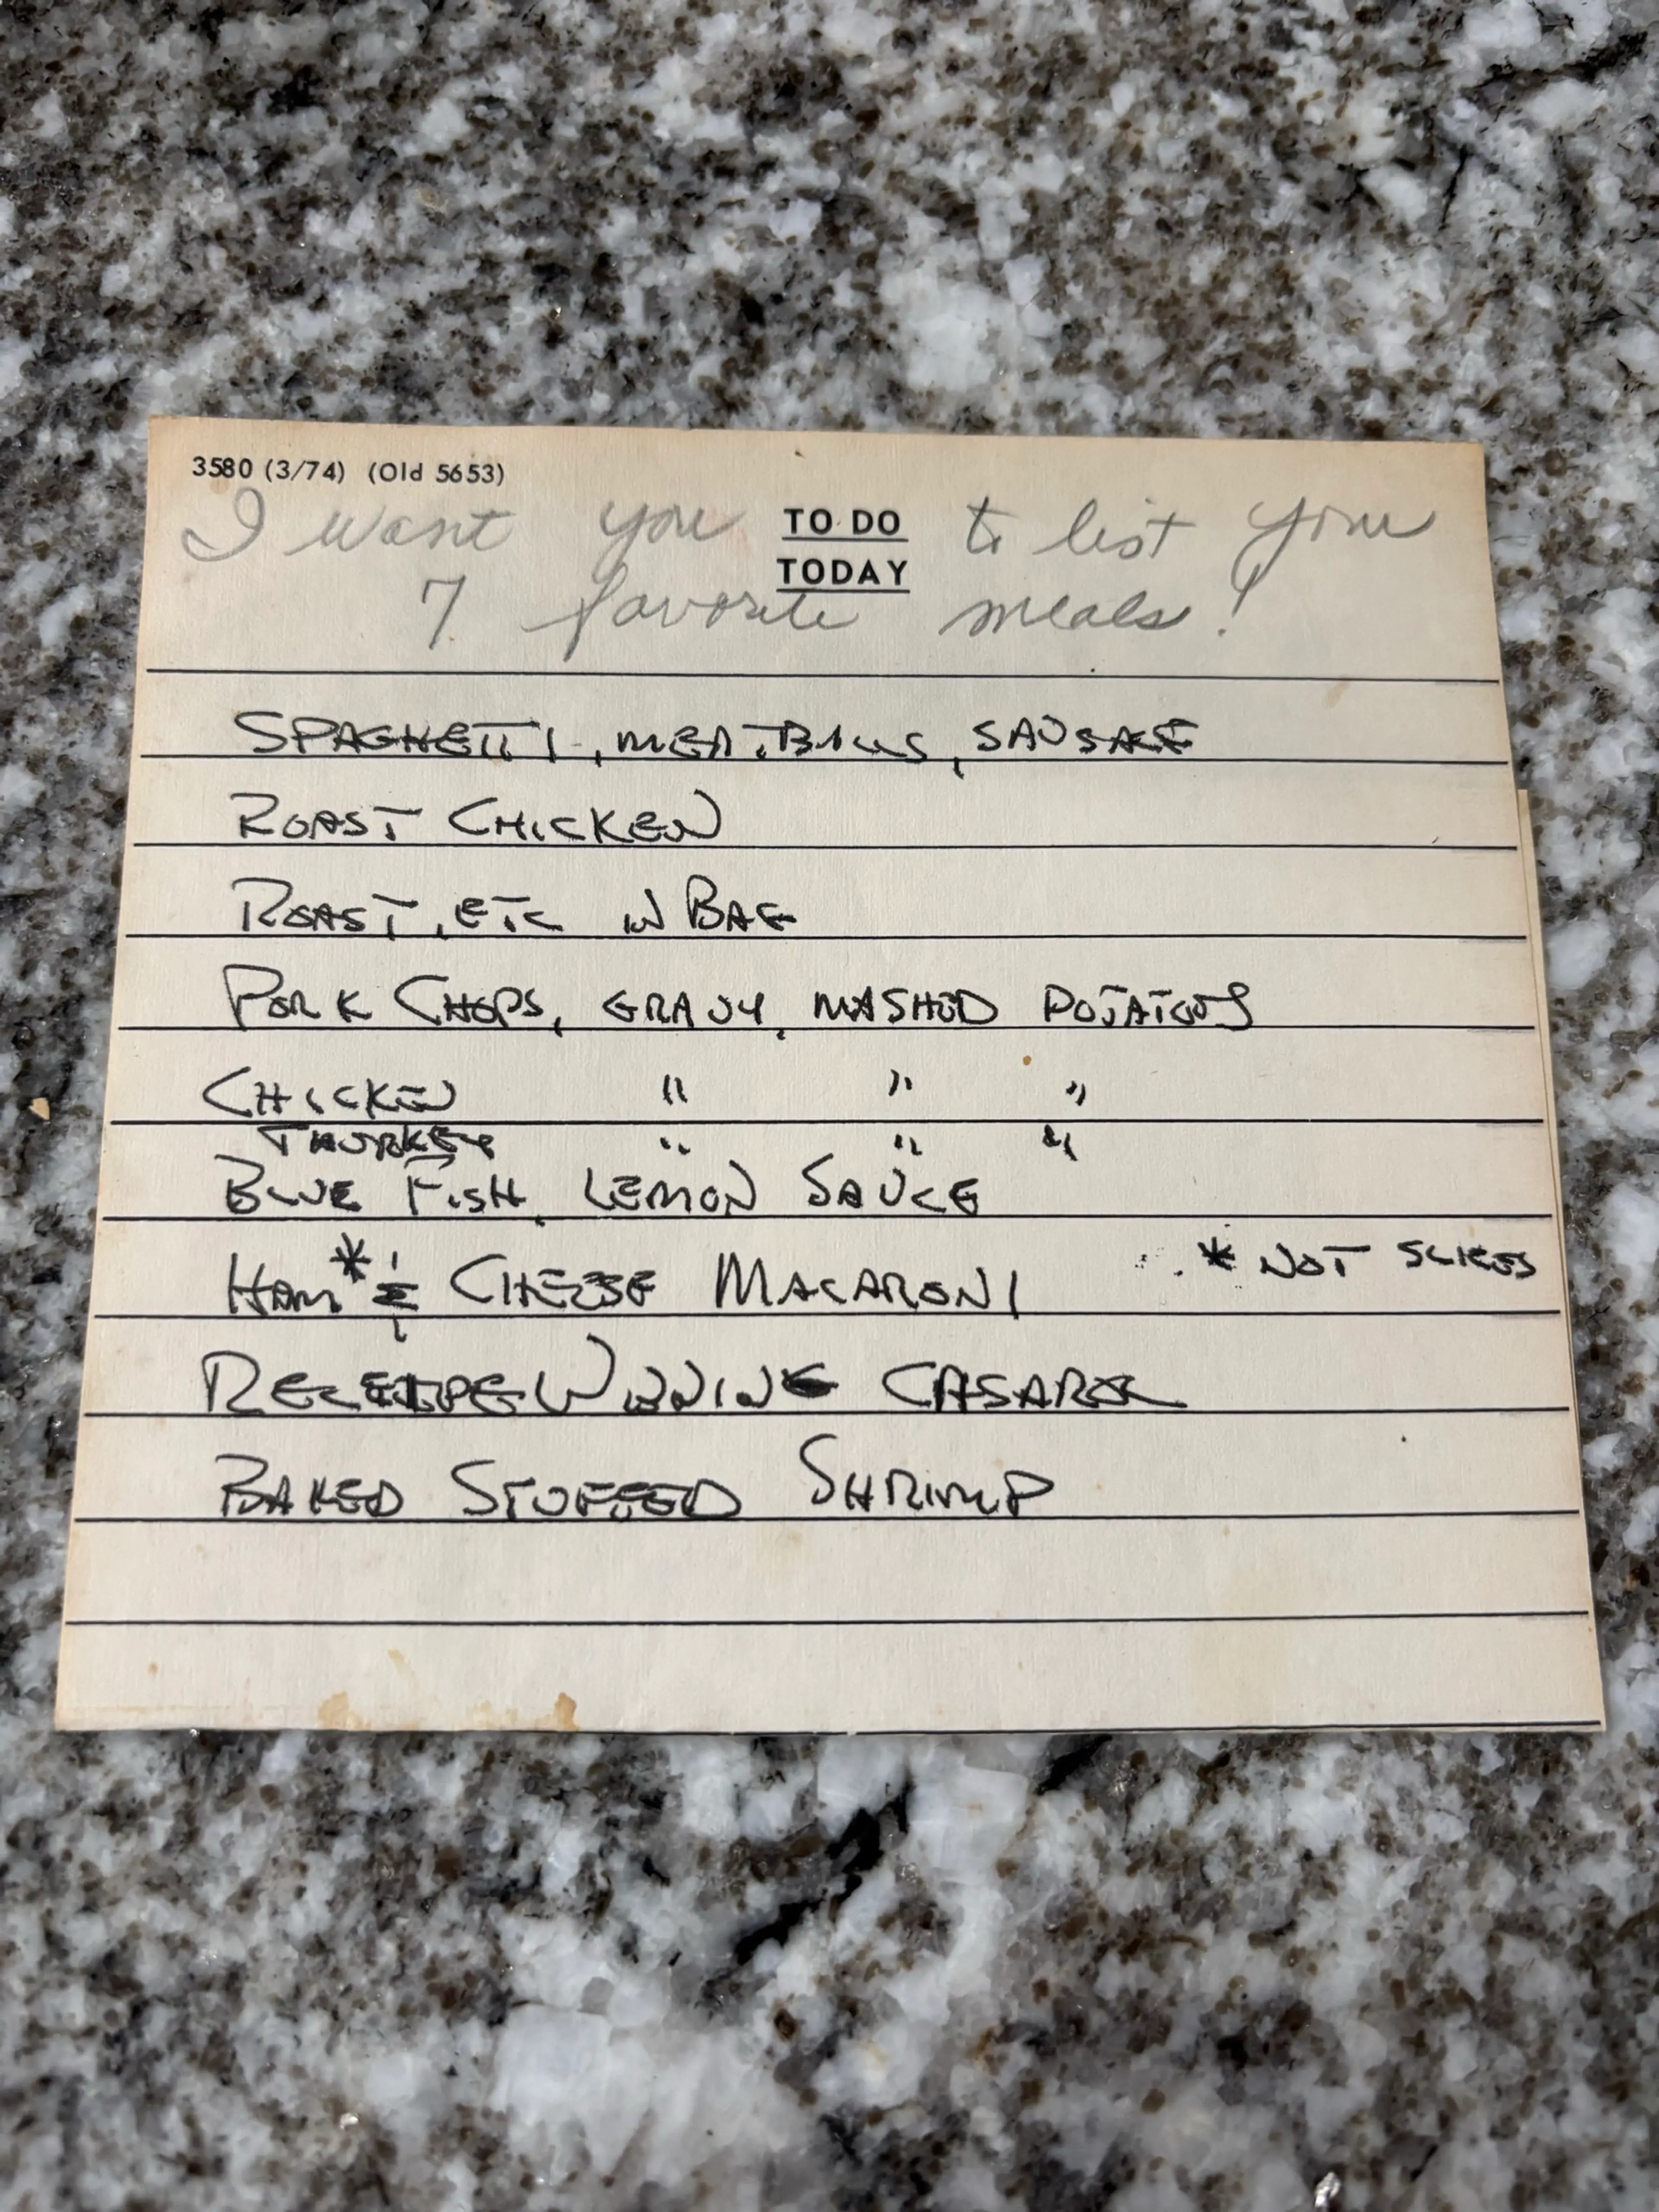 3580 (3/74) (Old 5653)
I want you TO DO to list your
TODAY
7 favorite meals!
SPAGHETTI, MEATBALLS, SAUSAGE
ROAST CHICKEN
ROAST, ETC IN BAG
PORK CHOPS, GRAVY, MASHED POTATOES
CHICKEN " " "
THURKEY " " "
BLUE FISH, LEMON SAUCE
HAM* & CHEESE MACARONI * NOT SLICES
RECEIPE WINNING CASAROL
BAKED STUFFED SHRIMP